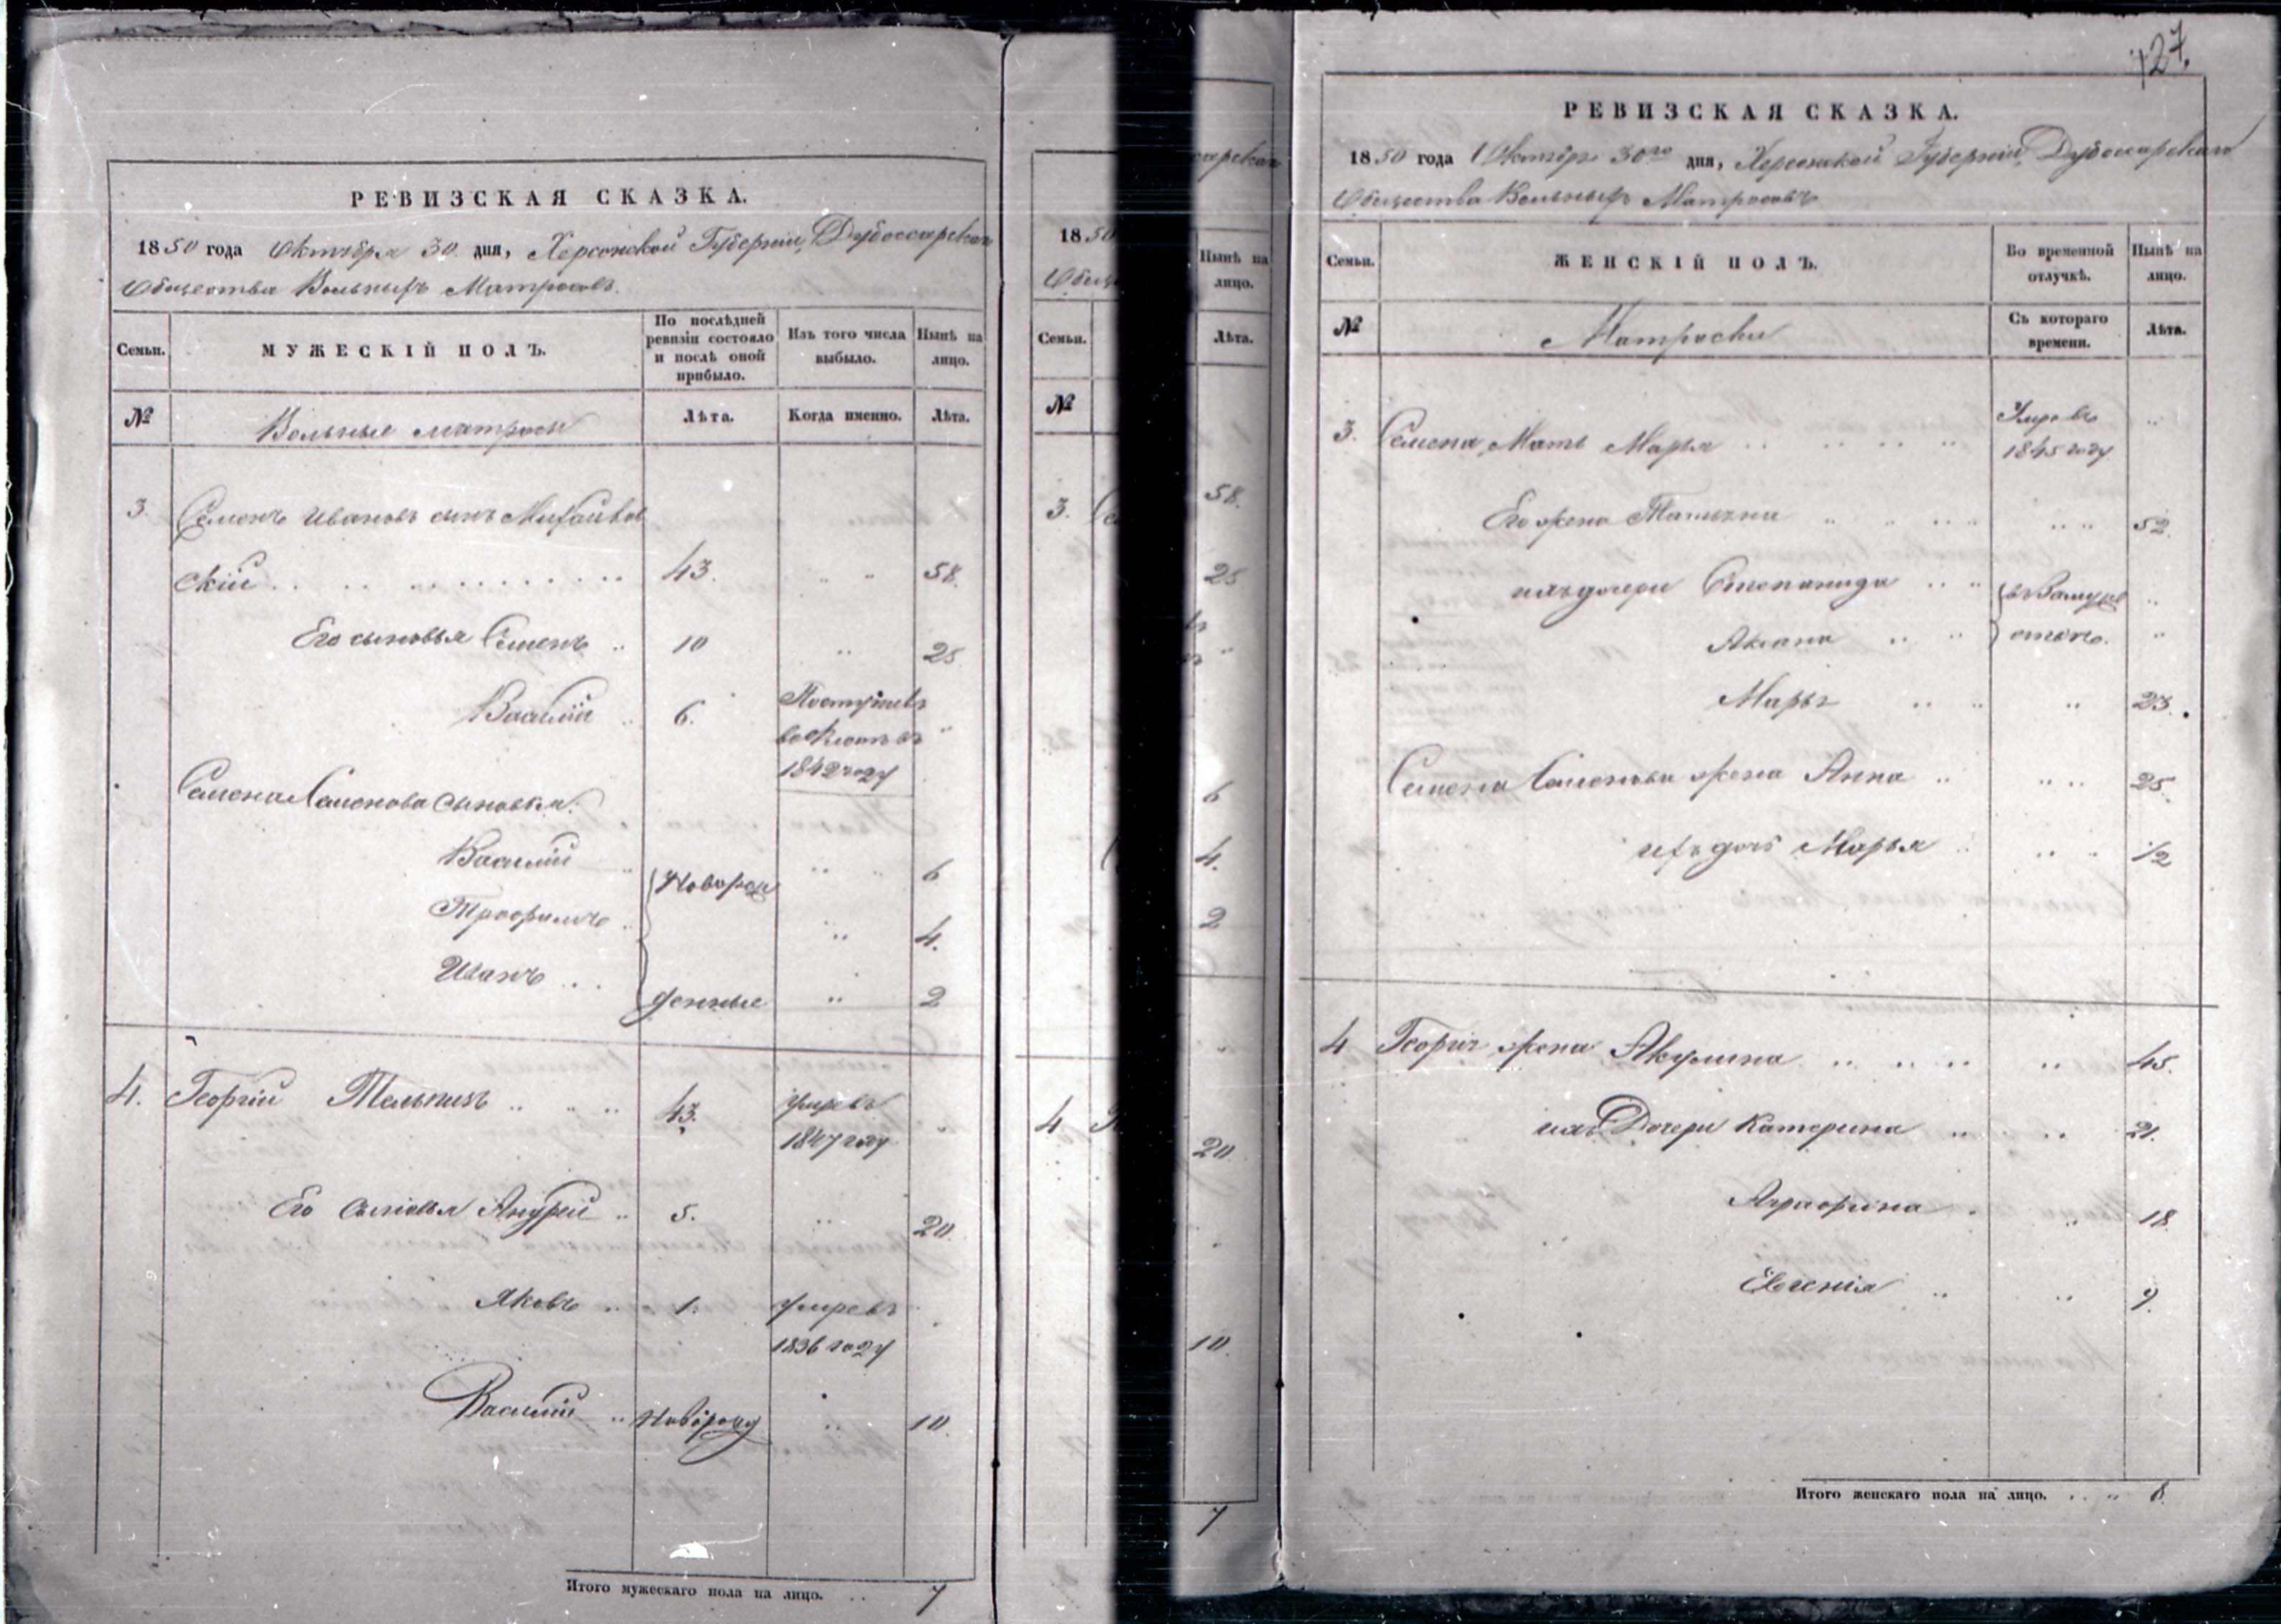 РЕВИЗСКАЯ СКАЗКА.
1850 года Октября 30 дня, Херсонской Губерніи, Дубоссарскаго
Общества Вольныхъ Матросовъ.
Семьи.
МУЖЕСКІЙ ПОЛЪ.
По послѣдней ревизіи состояло и послѣ оной прибыло.
Изъ того числа выбыло.
Нынѣ на лицо.
№
Вольные матросы
Лѣта.
Когда именно.
Лѣта.
3. Семенъ Ивановъ сынъ
скій 43. 58.
Его сыновья Семенъ 10 25
Василій 6. Поступилъ
во флотъ въ
1842 году
Семена Семенова сыновья:
Василій Новорож 6
Трофимъ 4.
Иванъ денные 2
4. Георгій 43. умре въ
1847 году
Его сыновья Андрей 5. 20.
Яковъ 1. умре въ
1836 году
Василій Новорожд 10.
Итого мужескаго пола на лицо. 7
1850
Общ
Семьи.
№
3. Се
4
сарскаго
Нынѣ на
лицо.
Лѣта.
58.
25
6
4.
2
20.
10.
7
127.
РЕВИЗСКАЯ СКАЗКА.
1850 года Октября 30го дня, Херсонской Губерніи, Дубоссарскаго
Общества Вольныхъ Матросовъ
Семьи.
ЖЕНСКІЙ ПОЛЪ.
Во временной отлучкѣ.
Нынѣ на лицо.
№
Матроски
Съ котораго времени.
Лѣта.
3. Семена Мать Марья Умре въ
1845 году
Его жена Татьяна 52.
ихъ дочери Степанида въ Замуже
Аксана
Марья 23.
Семена Семенова жена Анна 25.
ихъ дочь Марья 1/2
4 Георгія жена Акулина 45.
ихъ Дочери Катерина 21.
Аграфина 18.
Евгенія 9.
Итого женскаго пола на лицо. 8.